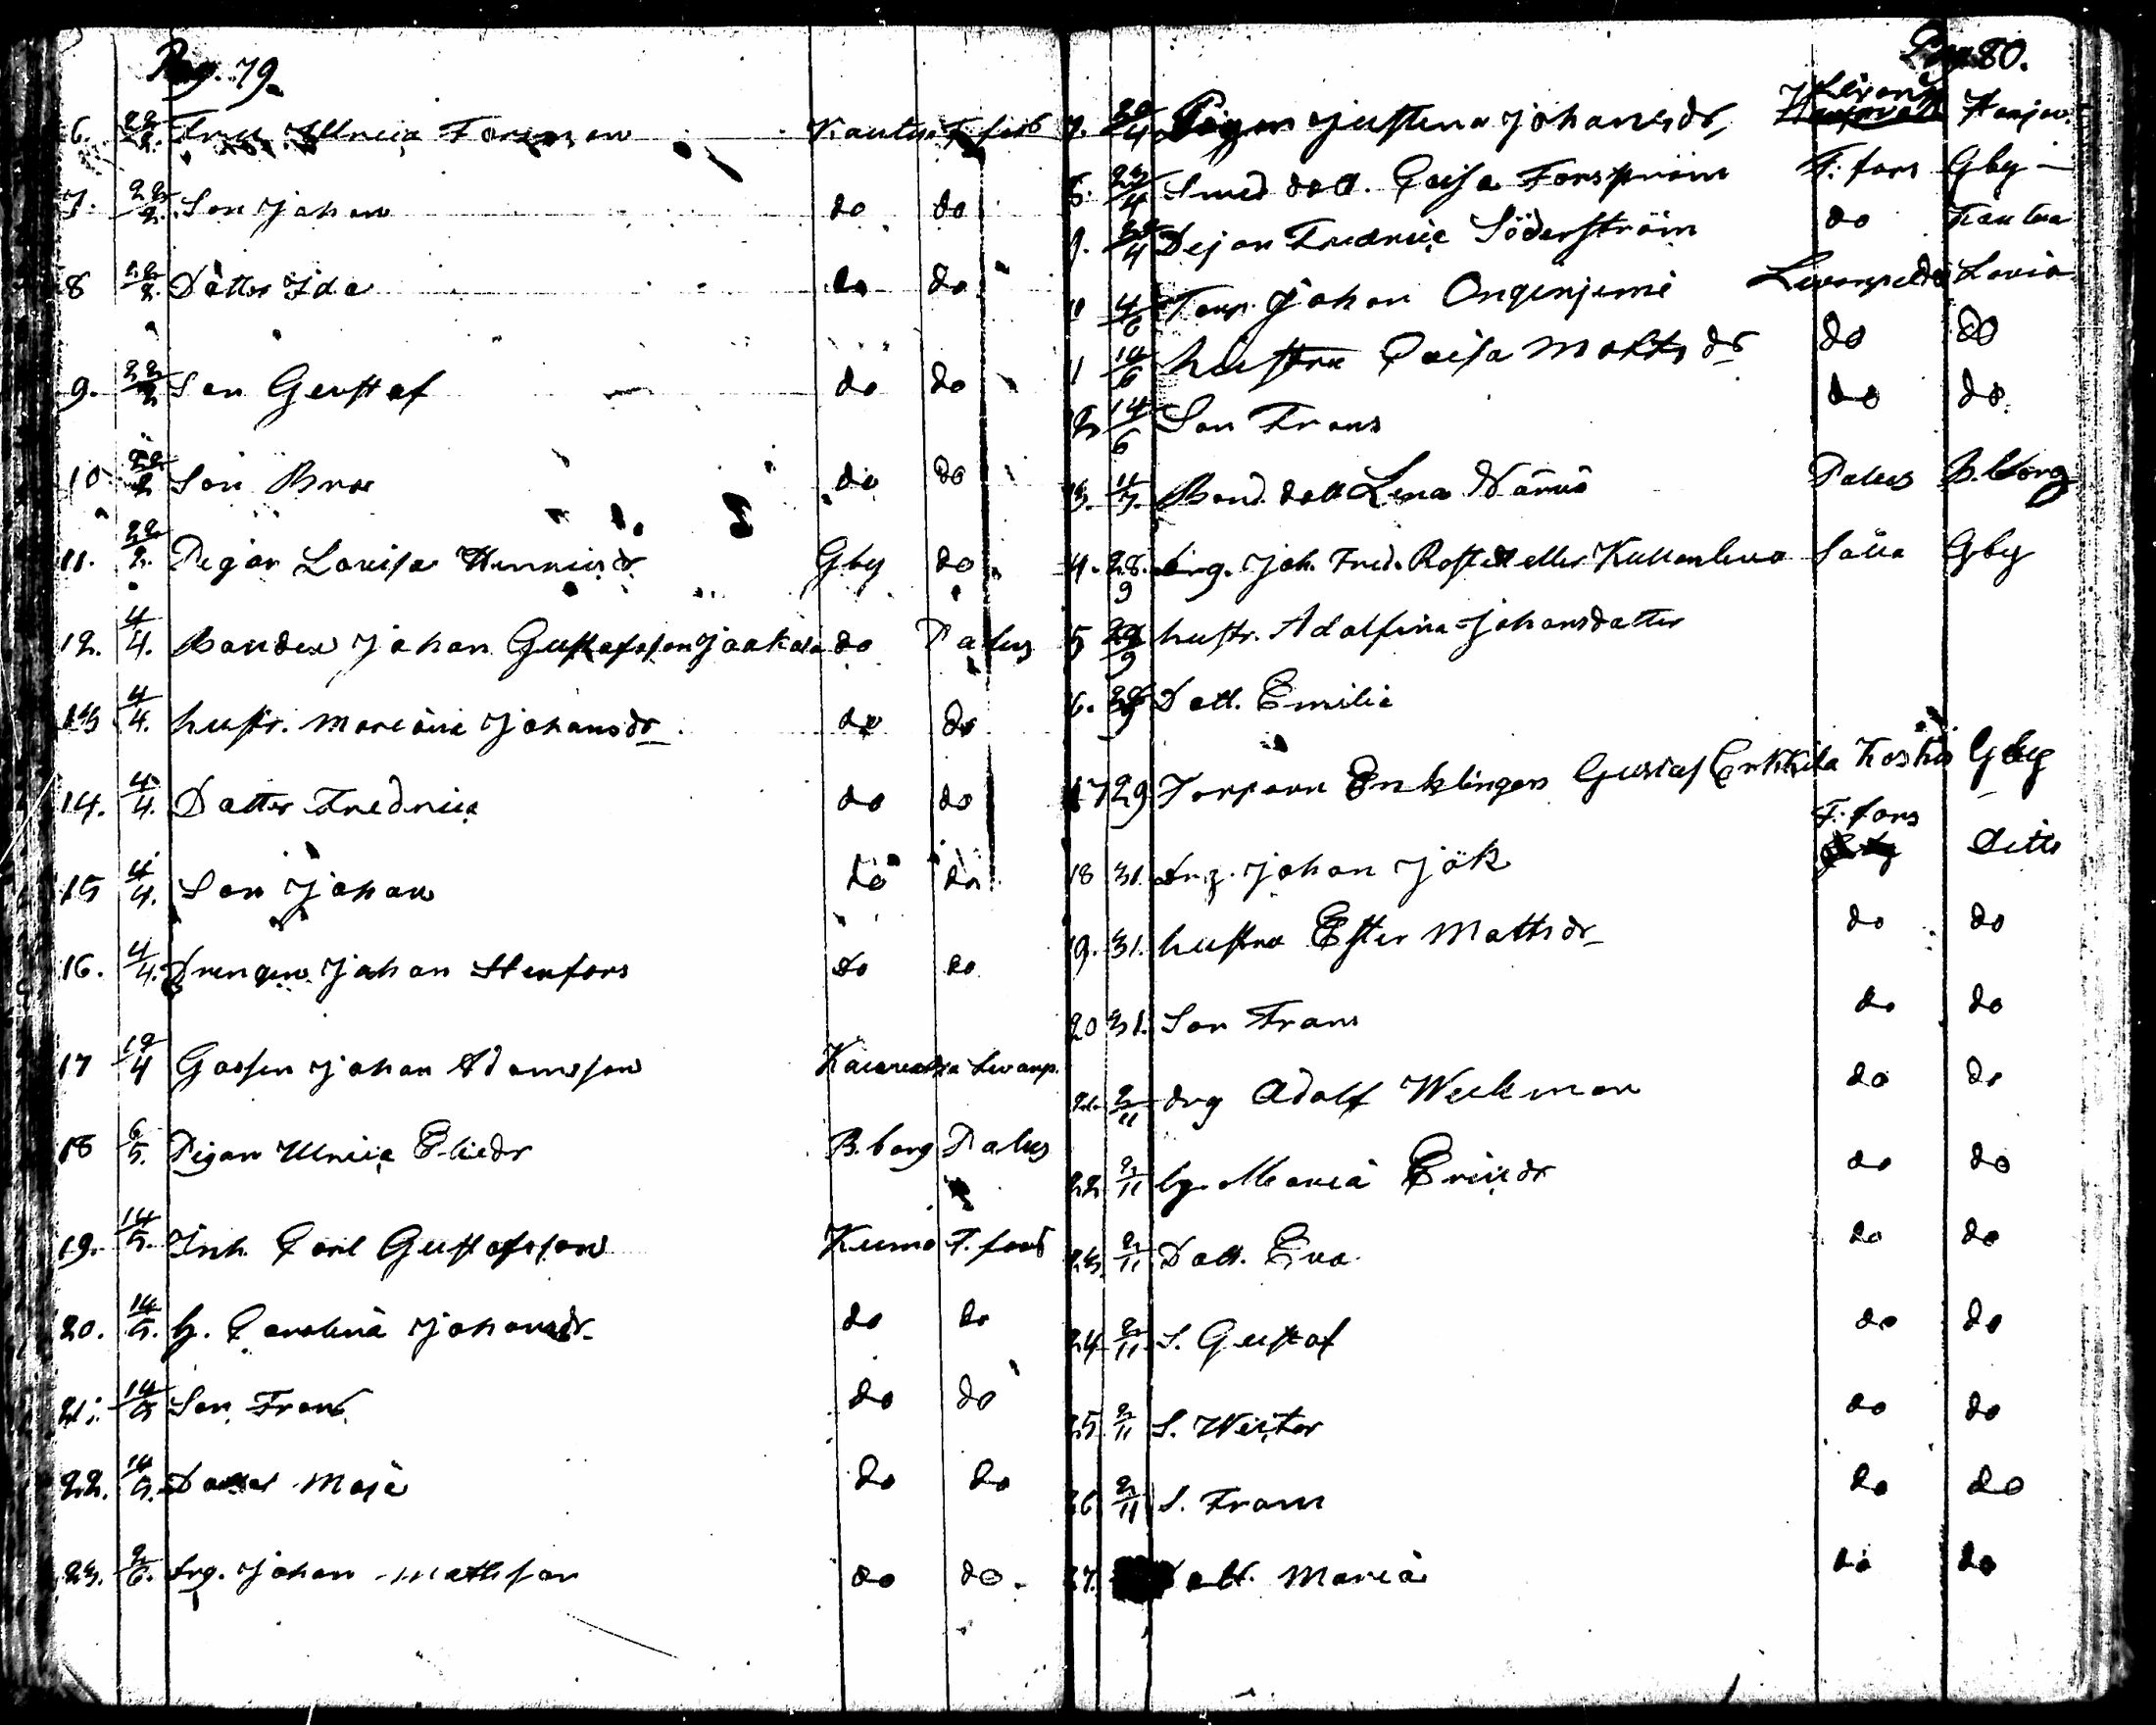 Pag. 79.
6. 22/2. Fru Ulrica Forsman Kautua F. fors
7. 22/2. Son Johan do do
8 22/2. Dotter Ida do do
9. 22/2 Son Gustaf do do
10 22/2 Son do do
11. 22/2. Pigan Lovisa Henricsdr Gby do
12. 4/4. Bonden Johan Gustafsson Jaakola do Palus
13 4/4. hustr. Maria Johansdr do do
14. 4/4. Dotter Fredrica do do
15 4/4. Son Johan do do
16. 4/4. Drengen Johan Stenfors do do
17 12/4 Gossen Johan Adamsson Levanp.
18 6/5. Pigan Ulrica Eliedr B.borg Palus
19. 14/5. Inh. Carl Gustafsson Kumo F. fors
20. 14/5. h. Carolina Johansdr do do
21. 14/5 Son Frans do do
22. 14/5. Dotter Maja do do
23. 2/6. Drg. Johan Mattsson do do.
Pag. 80.
7. 20/4 Pigan Justina Johansdr Harjav.
8. 23/4 Smed dott. Caisa Forsström F. fors Gby
9. Pejan Fredrica Söderström do Kautua
4/6 Torp. Johan Ongenjemi Levanpeldo Lavia
1 14/6 hustru Caisa Matts dr do do
2 14/6 Son Frans do do.
13. Bond. dott Lena Närvä Palus B.borg
4. 28/9 drg. Joh. Fred. Rostedt eller Kullanluva Sälla Gby
5 28/9 hustr. Adolfina Johansdotter
6. 28/9 Dott. Emilia
17 29 Torparn Enklingen Gustaf Erkkila Koskis Gby
18 31. drg. Johan Jåk F. fors ditto
19. 31. hustru Ester Mattsdr do do
20 31. Son Frans do do
21. 2/11 drg Adolf Weckman do do
22 2/11 h. Maria Ericsdr do do
23. 2/11 Dott. Eva do do
24 2/11 S. Gustaf do do
25 2/11 S. Wictor do do
26 2/11 S. Frans do do
27. Dott. Maria do do